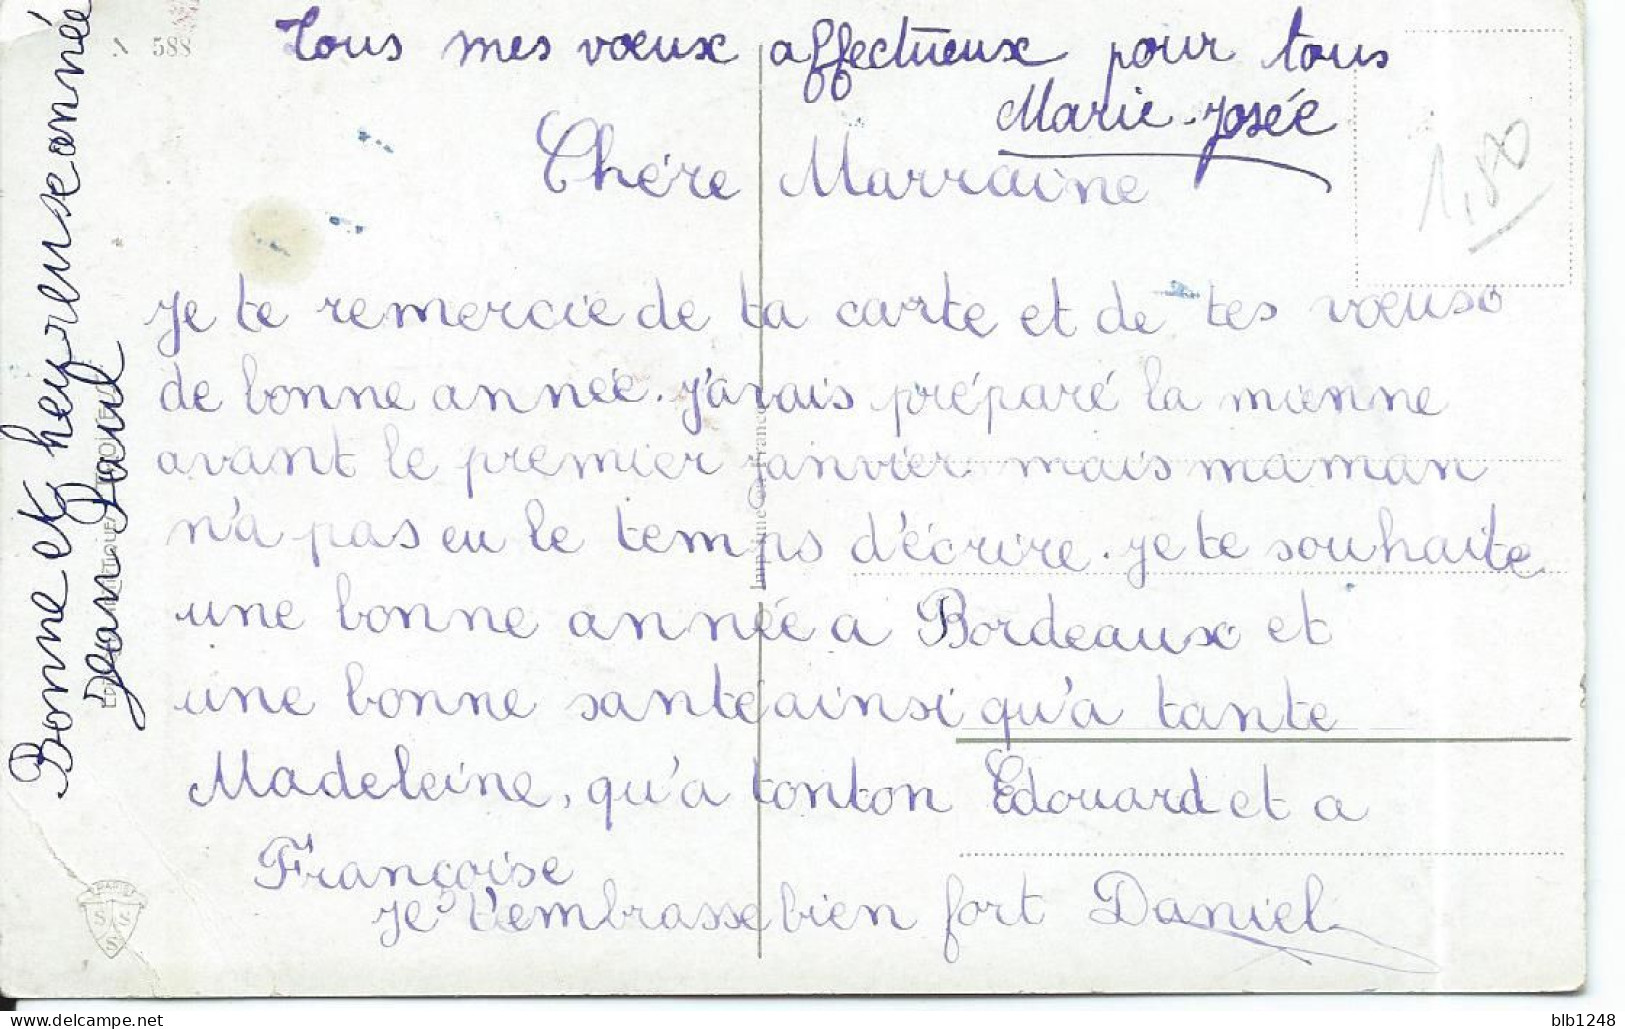 Tous mes vœux affectueux pour tous
Marie-Josée
Chére Marraine
Je te remercie de ta carte et de tes vœux
de bonne année. J'avais préparé la mienne
avant le premier janvier mais maman
n'a pas eu le temps d'écrire. Je te souhaite
une bonne année a Bordeaux et
une bonne sante ainsi qu'a tante
Madeleine, qu'a tonton Edouard et a
Françoise
Je t'embrasse bien fort Daniel
Bonne et heureuse année
Jean Paul
588
1,80
Imprimé en France
PARIS
blb1248